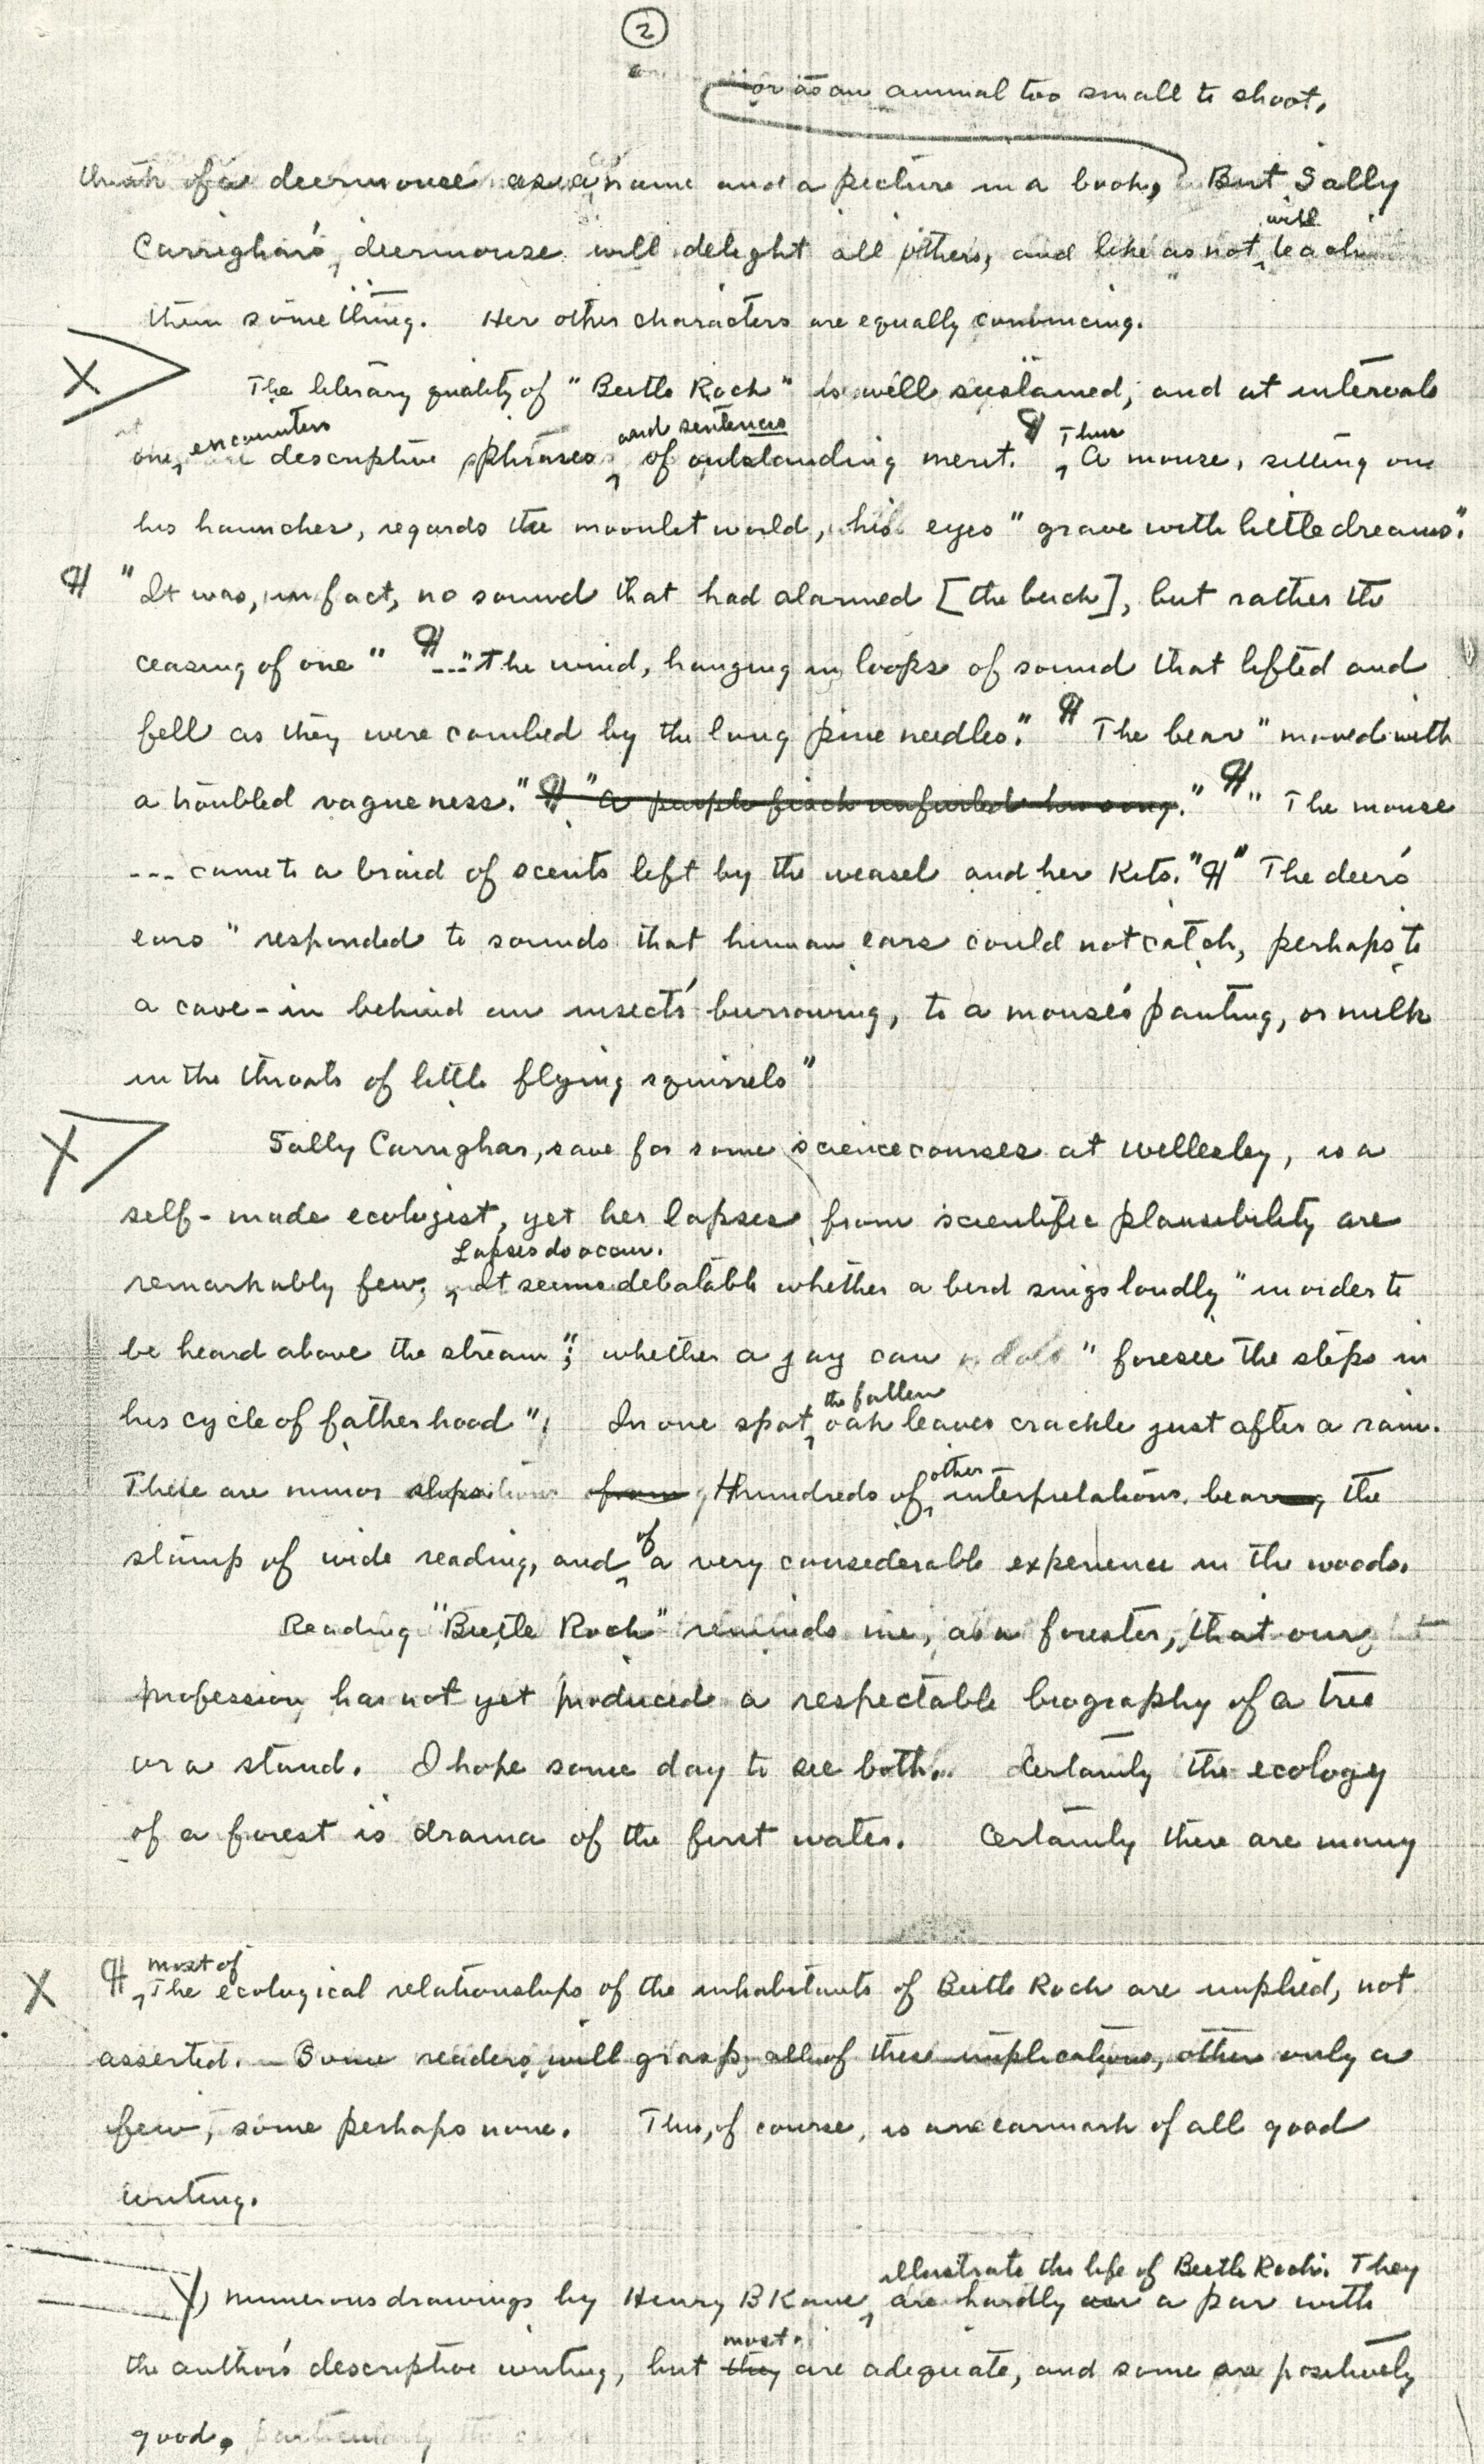 2
or as an animal too small to shoot.
think of a deermouse as a name and a picture in a book, But Sally
will
Carrighar's deermouse will delight all others, and like as not teach
them something. Her other characters are equally convincing.
X
The literary quality of "Beetle Rock" is well sustained, and at intervals
encounters and sentences Thus
one descriptive phrases of outstanding merit. ¶ A mouse, sitting on
his haunches, regards the moonlit world, his eyes "grave with little dreams".
¶ "It was, in fact, no sound that had alarmed [the buck], but rather the
ceasing of one" ¶ ---"The wind, hanging in loops of sound that lifted and
fell as they were combed by the long pine needles." ¶ The bear "moved with
a troubled vagueness." ¶ "A purple finch unfurled his song." ¶ " The mouse
--- came to a braid of scents left by the weasel and her kits." ¶ " The deer's
ears "responded to sounds that human ears could not catch, perhaps to
a cave-in behind an insect's burrowing, to a mouse's panting, or milk
in the throats of little flying squirrels"
X
Sally Carrighar, save for some science courses at Wellesley, is a
self-made ecologist, yet her lapses from scientific plausibility are
Lapses do occur.
remarkably few; It seems debatable whether a bird sings loudly "in order to
be heard above the stream"; whether a jay can "foresee the steps in
the fallen
his cycle of fatherhood"; In one spot oak leaves crackle just after a rain.
other
These are minor slips from Hundreds of interpretations bearing the
of
stamp of wide reading, and a very considerable experience in the woods.
Reading "Beetle Rock" reminds me, as a forester, that our
profession has not yet produced a respectable biography of a tree
or a stand. I hope some day to see both. Certainly the ecology
of a forest is drama of the first water. Certainly there are many
most of
X ¶ The ecological relationships of the inhabitants of Beetle Rock are implied, not
asserted. Some readers will grasp all of these implications, others only a
few, some perhaps none. This, of course, is an earmark of all good
writing.
illustrate the life of Beetle Rock. They
numerous drawings by Henry B Kane are hardly on a par with
most
the author's descriptive writing, but they are adequate, and some are positively
good, particularly the